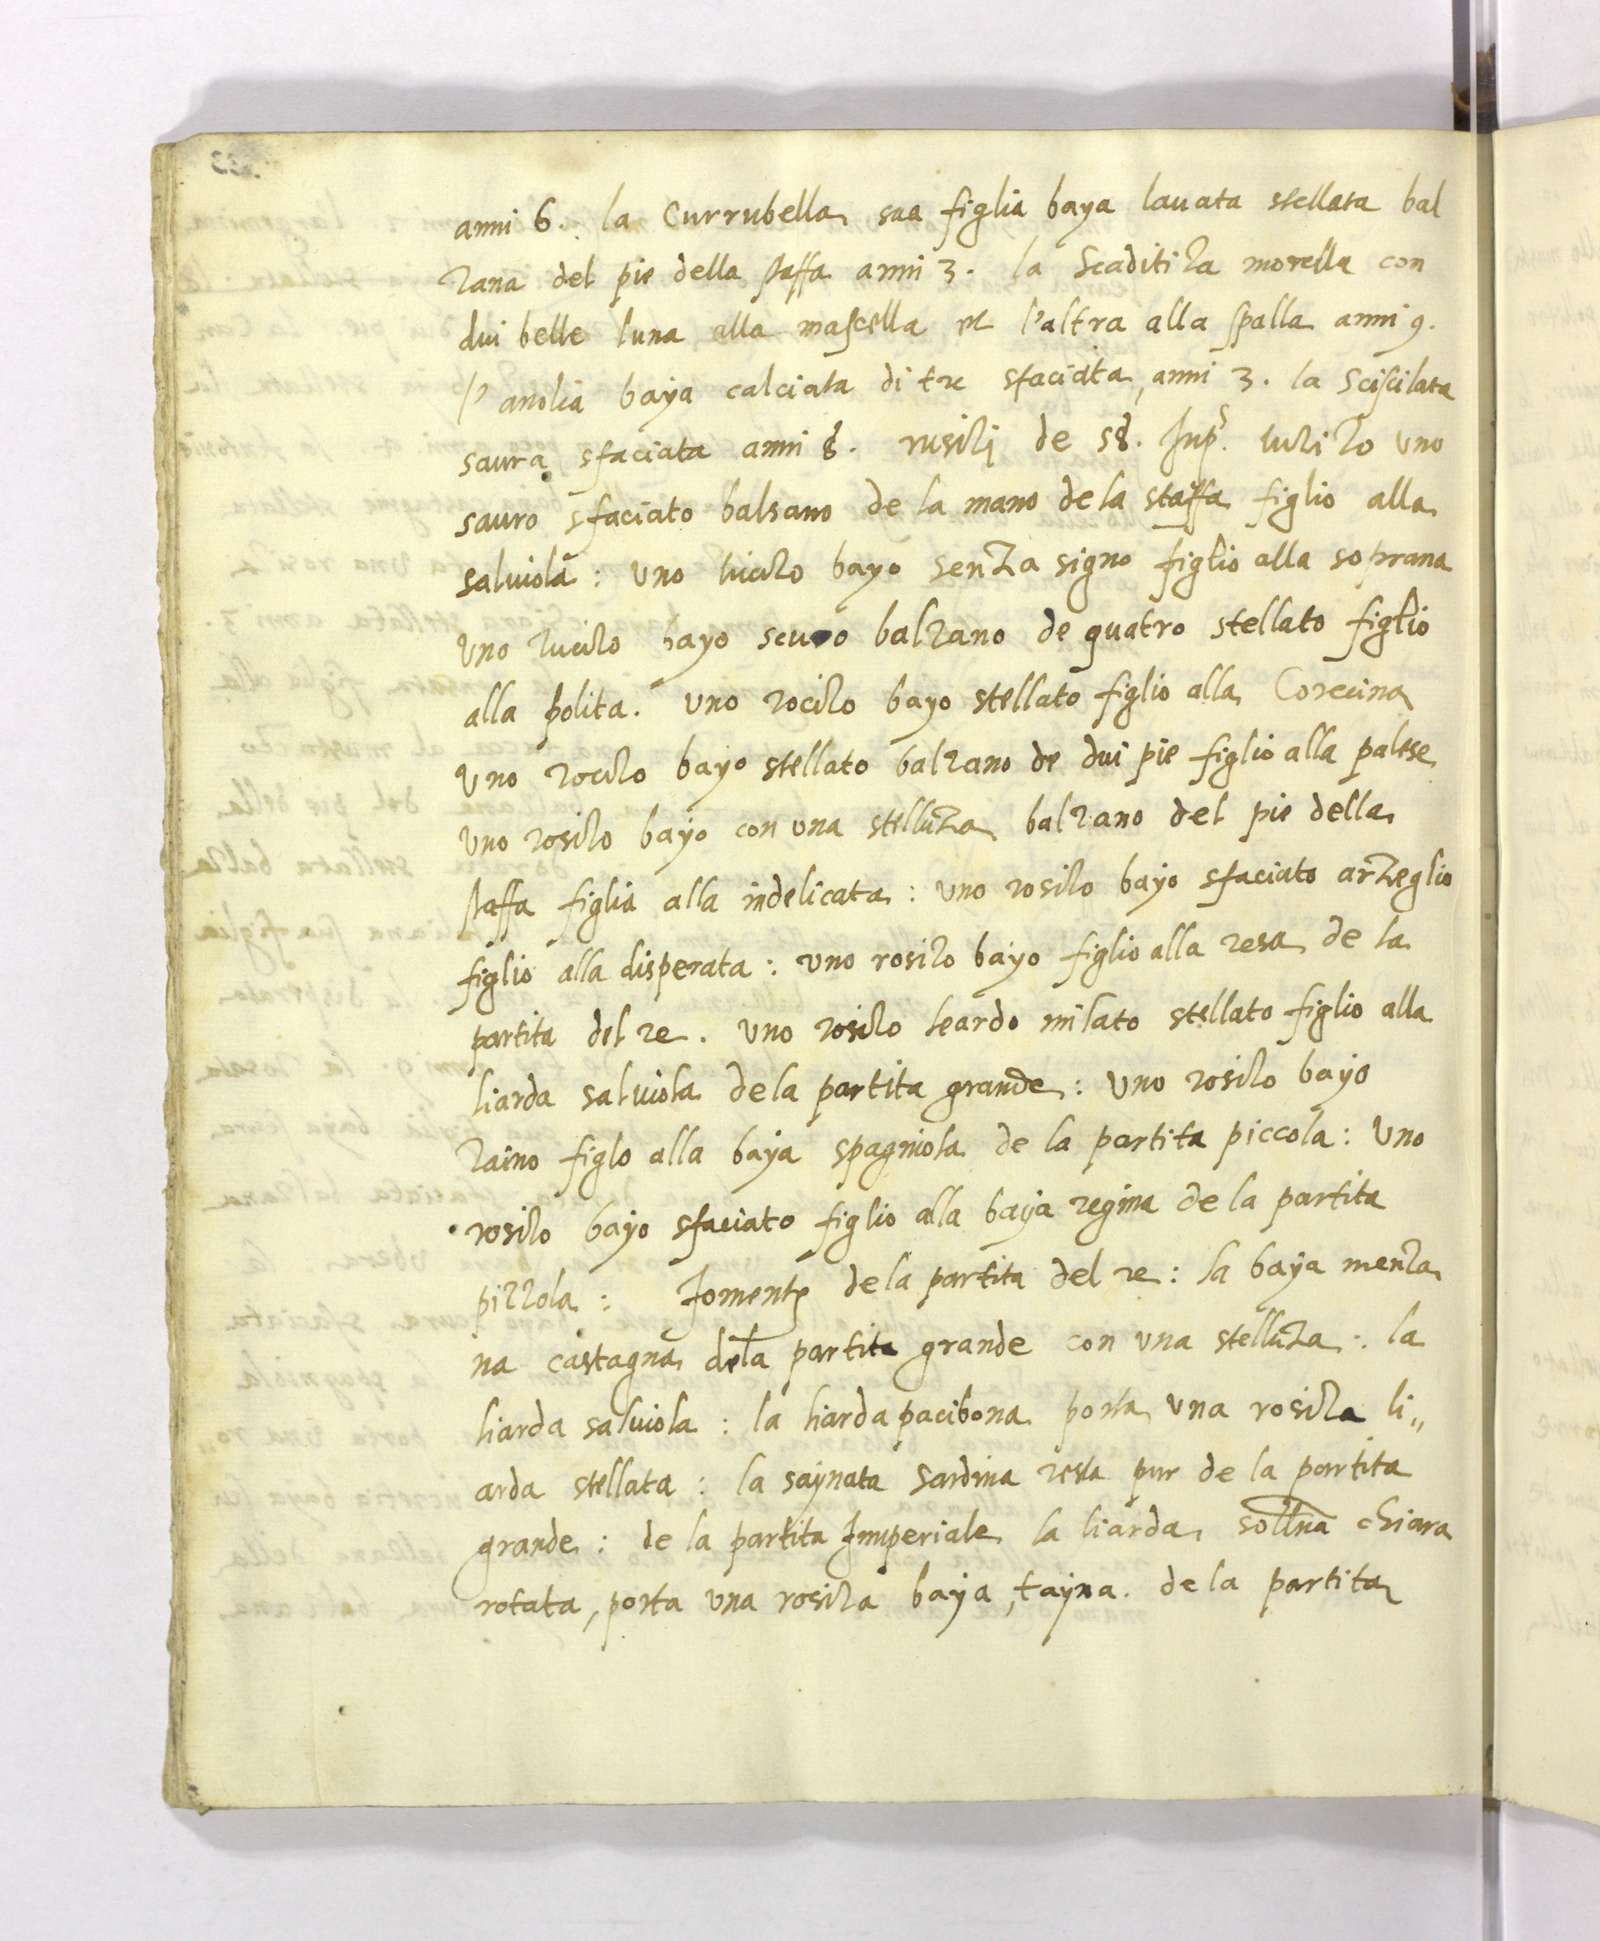 anni 6. la Currubella sua figlia baya lauata stellata bal
zana del pie della staffa anni 3. la Scaditiza morella con
dui belle luna alla mascella et l'altra alla spalla anni 9.
l'anolia baya calciata di tre sfaciata, anni 3. la Sciscilata
saura sfaciata anni 8. rusili de 58. Imp. uno
sauro sfaciato balsano de la mano de la staffa figlio alla
saluiola : uno bayo senza signo figlio alla soprana
uno bayo scuro balzano de quatro stellato figlio
alla polita. uno rocilo bayo stellato figlio alla Corecina
uno rocilo bayo stellato balzano de dui pie figlio alla palese
uno rosilo bayo con una stelluza balzano del pie della
staffa figlia alla indelicata : uno rosilo bayo sfaciato arzeglio
figlio alla disperata : uno rosilo bayo figlio alla resa de la
partita del re. uno rosilo leardo milato stellato figlio alla
liarda saluiola de la partita grande : uno rosilo bayo
zaino figlo alla baya spagniola de la partita piccola : uno
rosilo bayo sfaciato figlio alla baya regina de la partita
pizzola : Jomente de la partita del re : la baya menza
na castagna dela partita grande con una stelluza : la
liarda saluiola : la liarda pacibona porta una rosilla li„
arda stellata : la saynata Sardina resta pur de la partita
grande : de la partita Imperiale la liarda sollna chiara
rotata, porta una rosilla baya, tayna. de la partita